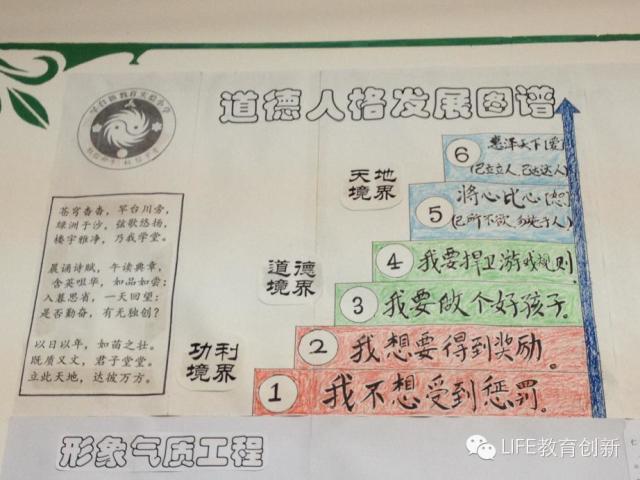 道德人格发展图谱
罕台新教育实验小学
苍穹杳杳，罕台川旁，
绿洲于沙，弦歌悠扬，
楼宇雅净，乃我学堂。
晨诵诗赋，午读典章，
含英咀华，如品如尝；
入暮思省，一天回望；
是否勤奋，有无独创？
以日以年，如苗之壮。
既质又文，君子堂堂。
立此天地，达拔万方。
天地
境界
道德
境界
功利
境界
6 惠泽天下(爱)
(己立立人，己达达人)
5 将心比心(恕)
(己所不欲，勿施于人)
4 我要捍卫游戏规则.
3 我要做个好孩子.
2 我想要得到奖励.
1 我不想受到惩罚.
形象气质工程
LIFE教育创新